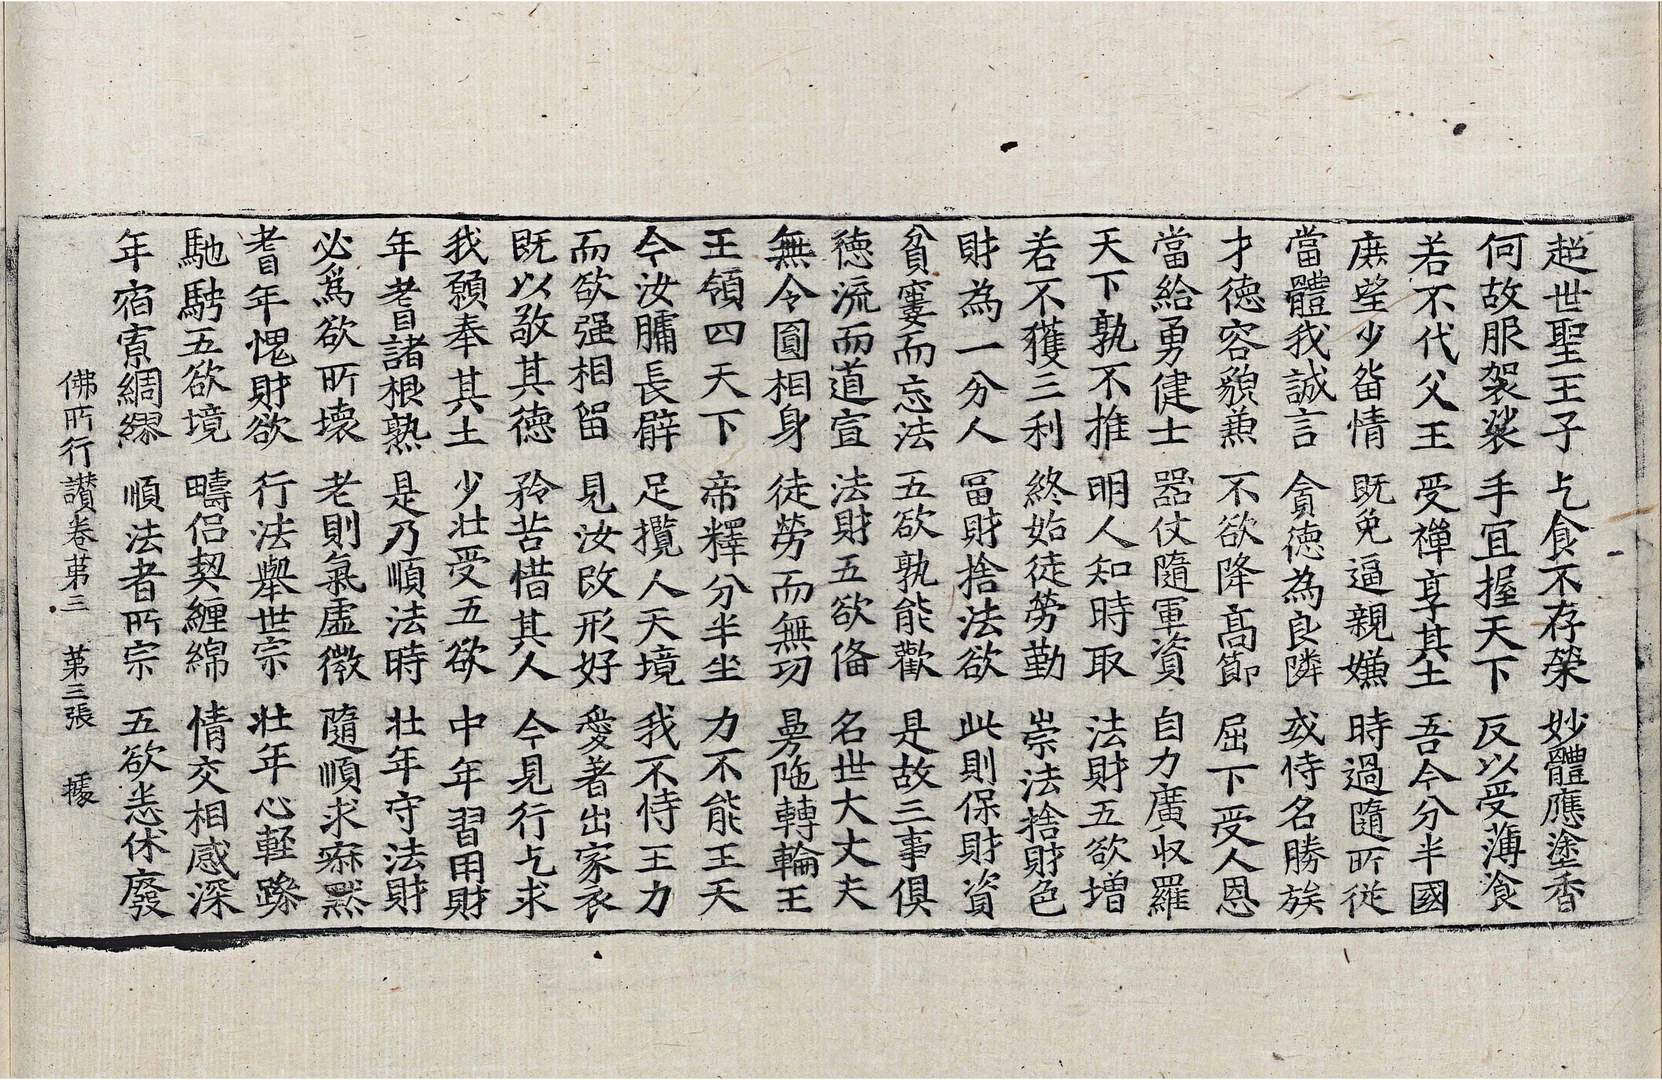 超世聖王子 乞食不存榮 妙體應塗香
何故服袈裟 手宜握天下 反以受薄飡
若不代父王 受禪享其土 吾今分半國
庶望少留情 既免逼親嫌 時過隨所從
當體我誠言 貪德為良隣 或恃名勝族
才德容貌兼 不欲降高節 屈下受人恩
當給勇健士 器仗隨軍資 自力廣收羅
天下孰不推 明人知時取 法財五欲增
若不獲三利 終始徒勞勤 崇法捨財色
財為一分人 冨財捨法欲 此則保財資
貧窶而忘法 五欲孰能歡 是故三事俱
德流而道宣 法財五欲俻 名世大丈夫
無令圓相身 徒勞而無功 曼陁轉輪王
王領四天下 帝釋分半坐 力不能王天
今汝𦟛長臂 足攬人天境 我不恃王力
而欲强相留 見汝改形好 愛著出家衣
既以敬其德 矜苦惜其人 今見行乞求
我願奉其土 少壯受五欲 中年習用財
年耆諸根熟 是乃順法時 壯年守法財
必爲欲所壞 老則氣虛微 隨順求寂默
耆年愧財欲 行法舉世宗 壯年心輕躁
馳騁五欲境 疇侣契纏綿 情交相感深
年宿寡綢繆 順法者所宗 五欲悉休廢
佛所行讃卷苐三 苐三張 據